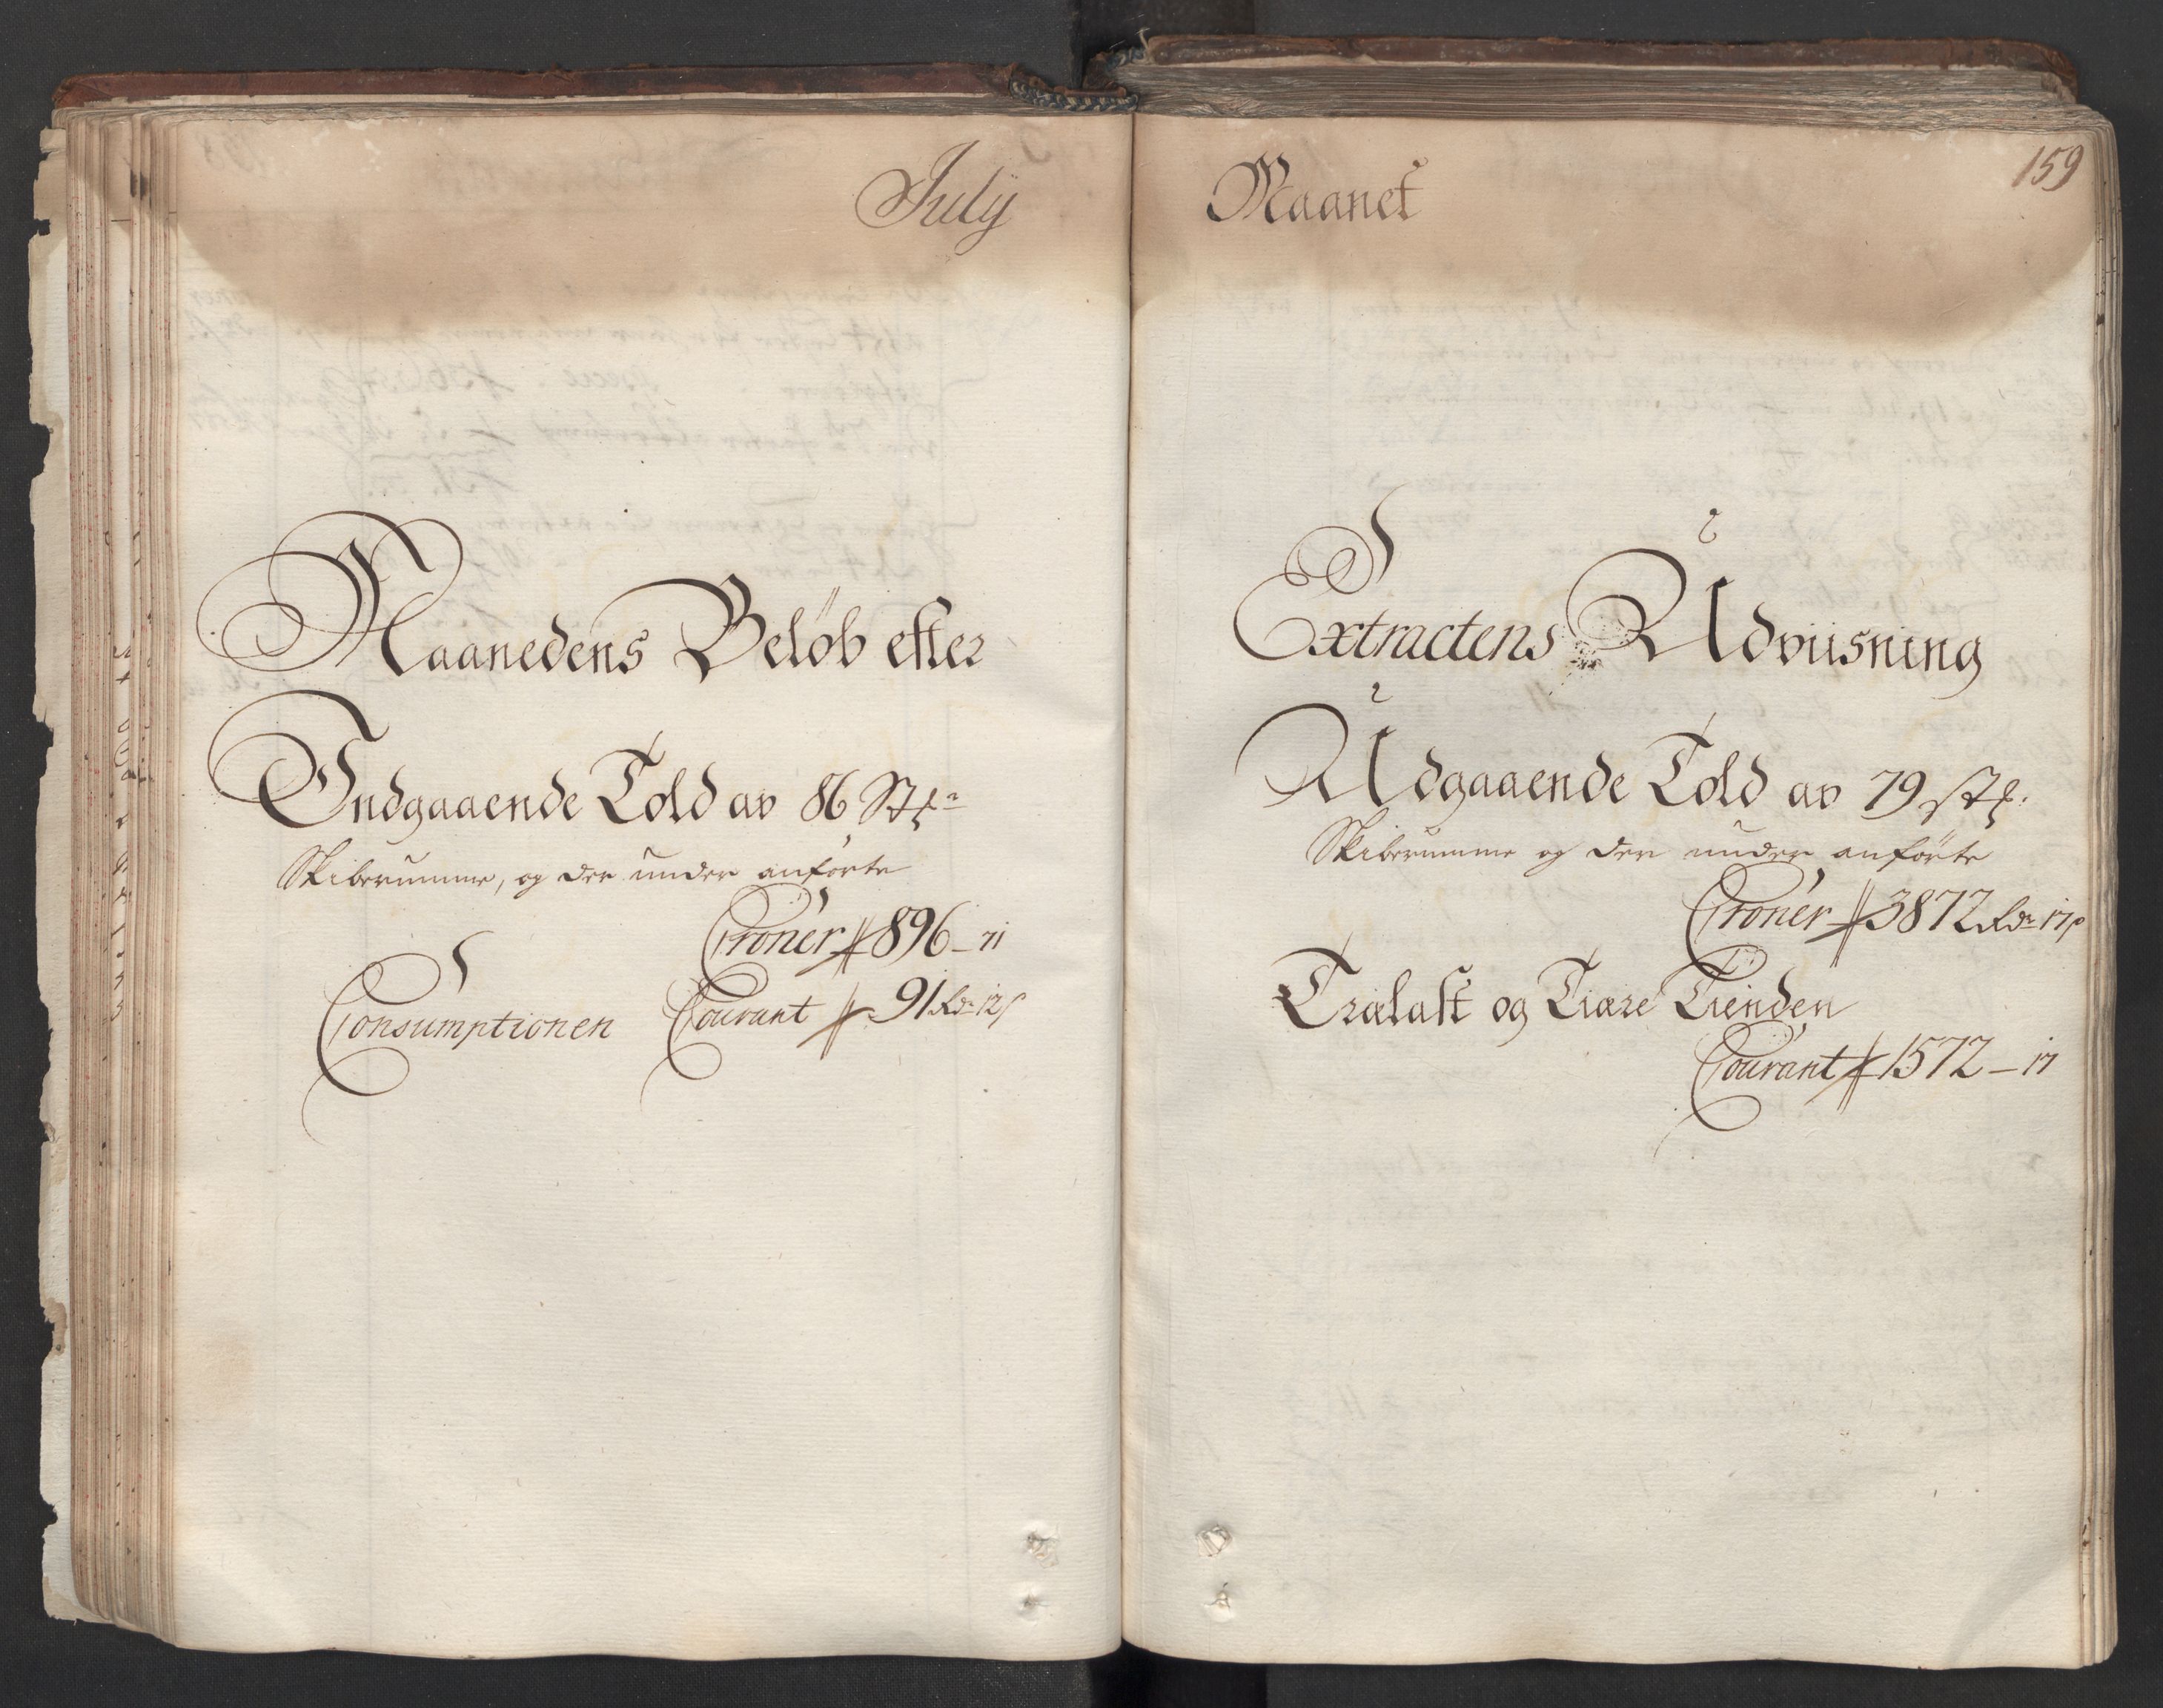 July
Maanedens Beløb efter
Indgaaende Told av 86 Stk:
Skiberumme, og der under anførte
Croner 896 – 71
Consumptionen Courant 91 Rdr 12 s
159
Maanet
Extractens Udviisning
Udgaaende Told av 79 stk:
Skiberumme og der under anførte
Croner 3872 Rdr 17 s
Trælast og Tiære Tienden
Courant 1572 – 17